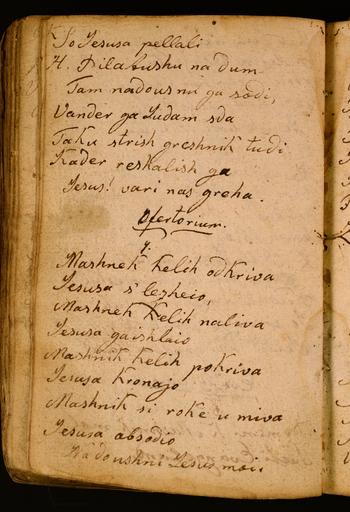 So Jesusa pellali
H. Pilatushu na dum
Tam nadousni ga sodi,
Vander ga Judam sda
Taku strish greshnik tudi.
Kader reskalish ga
Jesus! vari nas greha.
Ofertorium.
Mashnek Kelih odkriva
Jesusa s'lezheio,
Mashnek Kelih naliva
Jesusa gaishlaio
Mashnik Kelih pokriva
Jesusa Kronajo
Mashnik si roke u miva
Jesusa absodio
Nadoushni Jesus moii